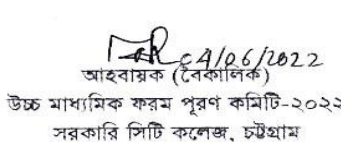 04/06/2022
আহবায়ক (বৈকালিক)
উচ্চ মাধ্যমিক ফরম পূরণ কমিটি-২০২২
সরকারি সিটি কলেজ, চট্টগ্রাম